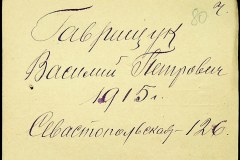 80 ч.
Гаврищук
Василий Петрович
1915 г.
Севастопольская-126.